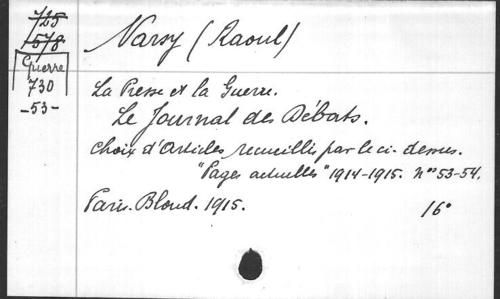 725
1578
Guerre
730
-53-
Narsy (Raoul)
La Presse et la Guerre.
Le Journal des Débats.
Choix d'Articles recueillis par le ci-dessus.
"Pages actuelles" 1914-1915. nos 53-54.
Paris. Bloud. 1915. 16°